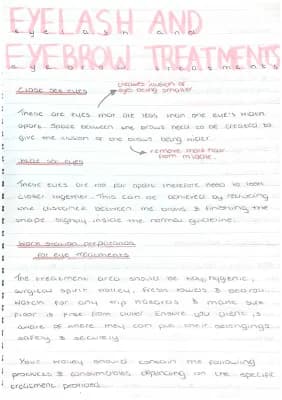 EYELASH AND
eyelash and
EYEBROW TREATMENTS
eyebrow treatments
Close set eyes
creates illusion of
eye being smaller
These are eyes that are less than one eye's width
apart. Space between the brows need to be created to
give the illusion of the brows being wider.
remove more hair
from middle.
Wide set eyes
These eyes are too far apart therefore need to look
closer together. This can be achieved by reducing
the distance between the brows & finishing the
shape slightly inside the normal guideline.
Work station preparation
for eye treatments
The treatment area should be tidy, hygenic,
surgical spirit trolley, fresh towels &
Watch for any trip hazards & make sure
floor is free from clutter. Ensure your client is
aware of where they can put their belongings
safely & securely
Your trolley should contain the following
products & consumables depending on the specific
treatment provided